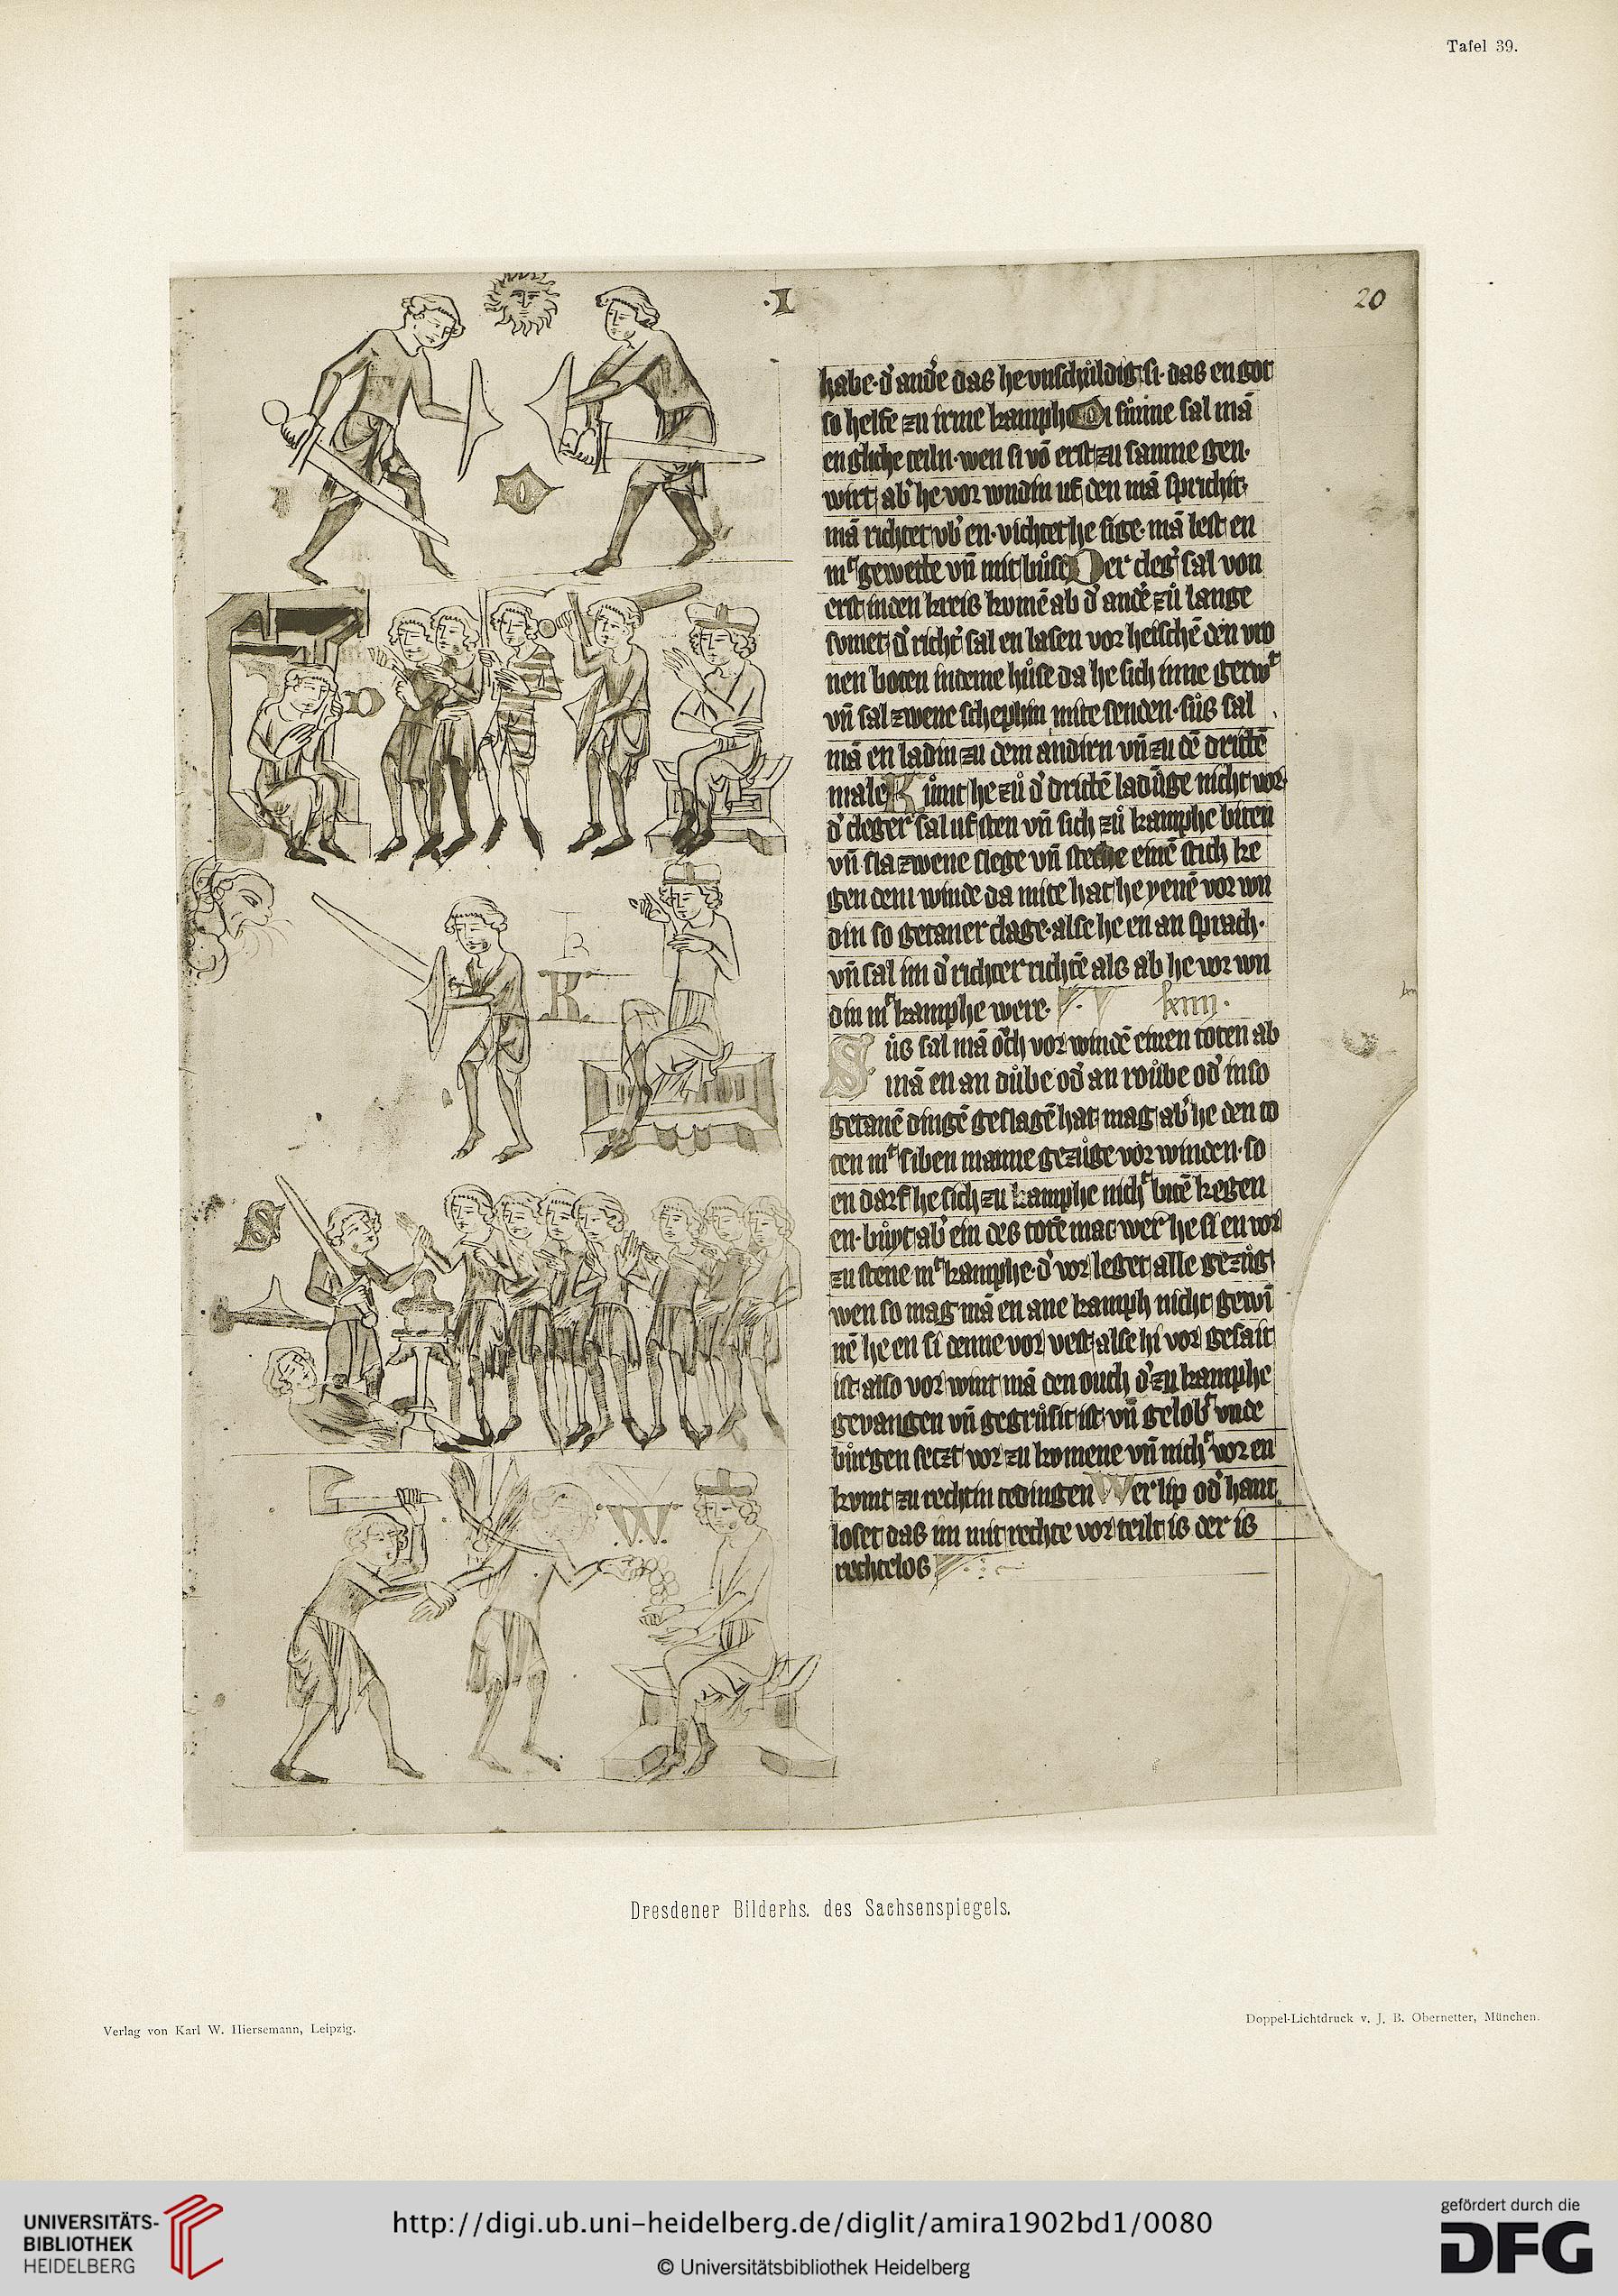 Tafel 39.
·I
20
habe· d' and'e das he vnschůldig si· das en got
so helfe zu irme kamphe Di sůnne sal mā
en gliche teiln· wen si vō erst zu samne gen·
wirt ab' he vor wndin uf den mā sprichit·
mā richtet vb' en· vichtet he sige· mā lest en
mͭ gewette vn̄ mit bůse Der cleg' sal von
erst in den kreis komē ab d' and'e zů lange
sumet d' richt' sal en lasen vor heischē den vro
nen boten in deme hůse da he sich inne gerwͭ
vn̄ sal zwene schephin mite senden· sůs sal
mā en ladin zu dem andirn vn̄ zu dē drittē
male Kůmt he zů d' drittē ladūge nicht vor·
d' cleger sal uf sten vn̄ sich zů kamphe biten
vn̄ sla zwene slege vn̄ steche einē stich ke
gen dem winde da mite hat he yenē vor wn
din so getaner clage· alse he en an sprach·
vn̄ sal im d' richter richtē als ab he vor wn
din mͭ kamphe were·
Sůs sal mā och vor windē einen toten ab
mā en an důbe od' an roůbe od' in so
getanē dingē geslagē hat· mag ab' he den to
ten mͭ siben manne gezůge vor winden· so
en darf he sich zu kamphe nichͭ bitē kegen
en· bůyt ab' ein des totē mac wer he si en vor
zu stene mͭ kamphe· d' vor leget alle gezůg
wen so mag mā en ane kamph nicht gewī
nē he en si denne vor vest· alse hi vor gesait
ist· also vor wint mā den ouch d' zu kamphe
gevangen vn̄ gegrůsit ist· vn̄ gelobͭ vnde
bůrgen setzt vor zu komene vn̄ nichͭ vor en
kvmt zu rechtin tedingen Wer lip od' hant
loset das im mit rechte vor teilt is der is
rechtelos
D
O
K
S
·W·
Dresdener Bilderhs. des Sachsenspiegels.
Verlag von Karl W. Hiersemann, Leipzig.
Doppel-Lichtdruck v. J. B. Obernetter, München.
UNIVERSITÄTS-
BIBLIOTHEK
HEIDELBERG
http://digi.ub.uni-heidelberg.de/diglit/amira1902bd1/0080
© Universitätsbibliothek Heidelberg
gefördert durch die
DFG